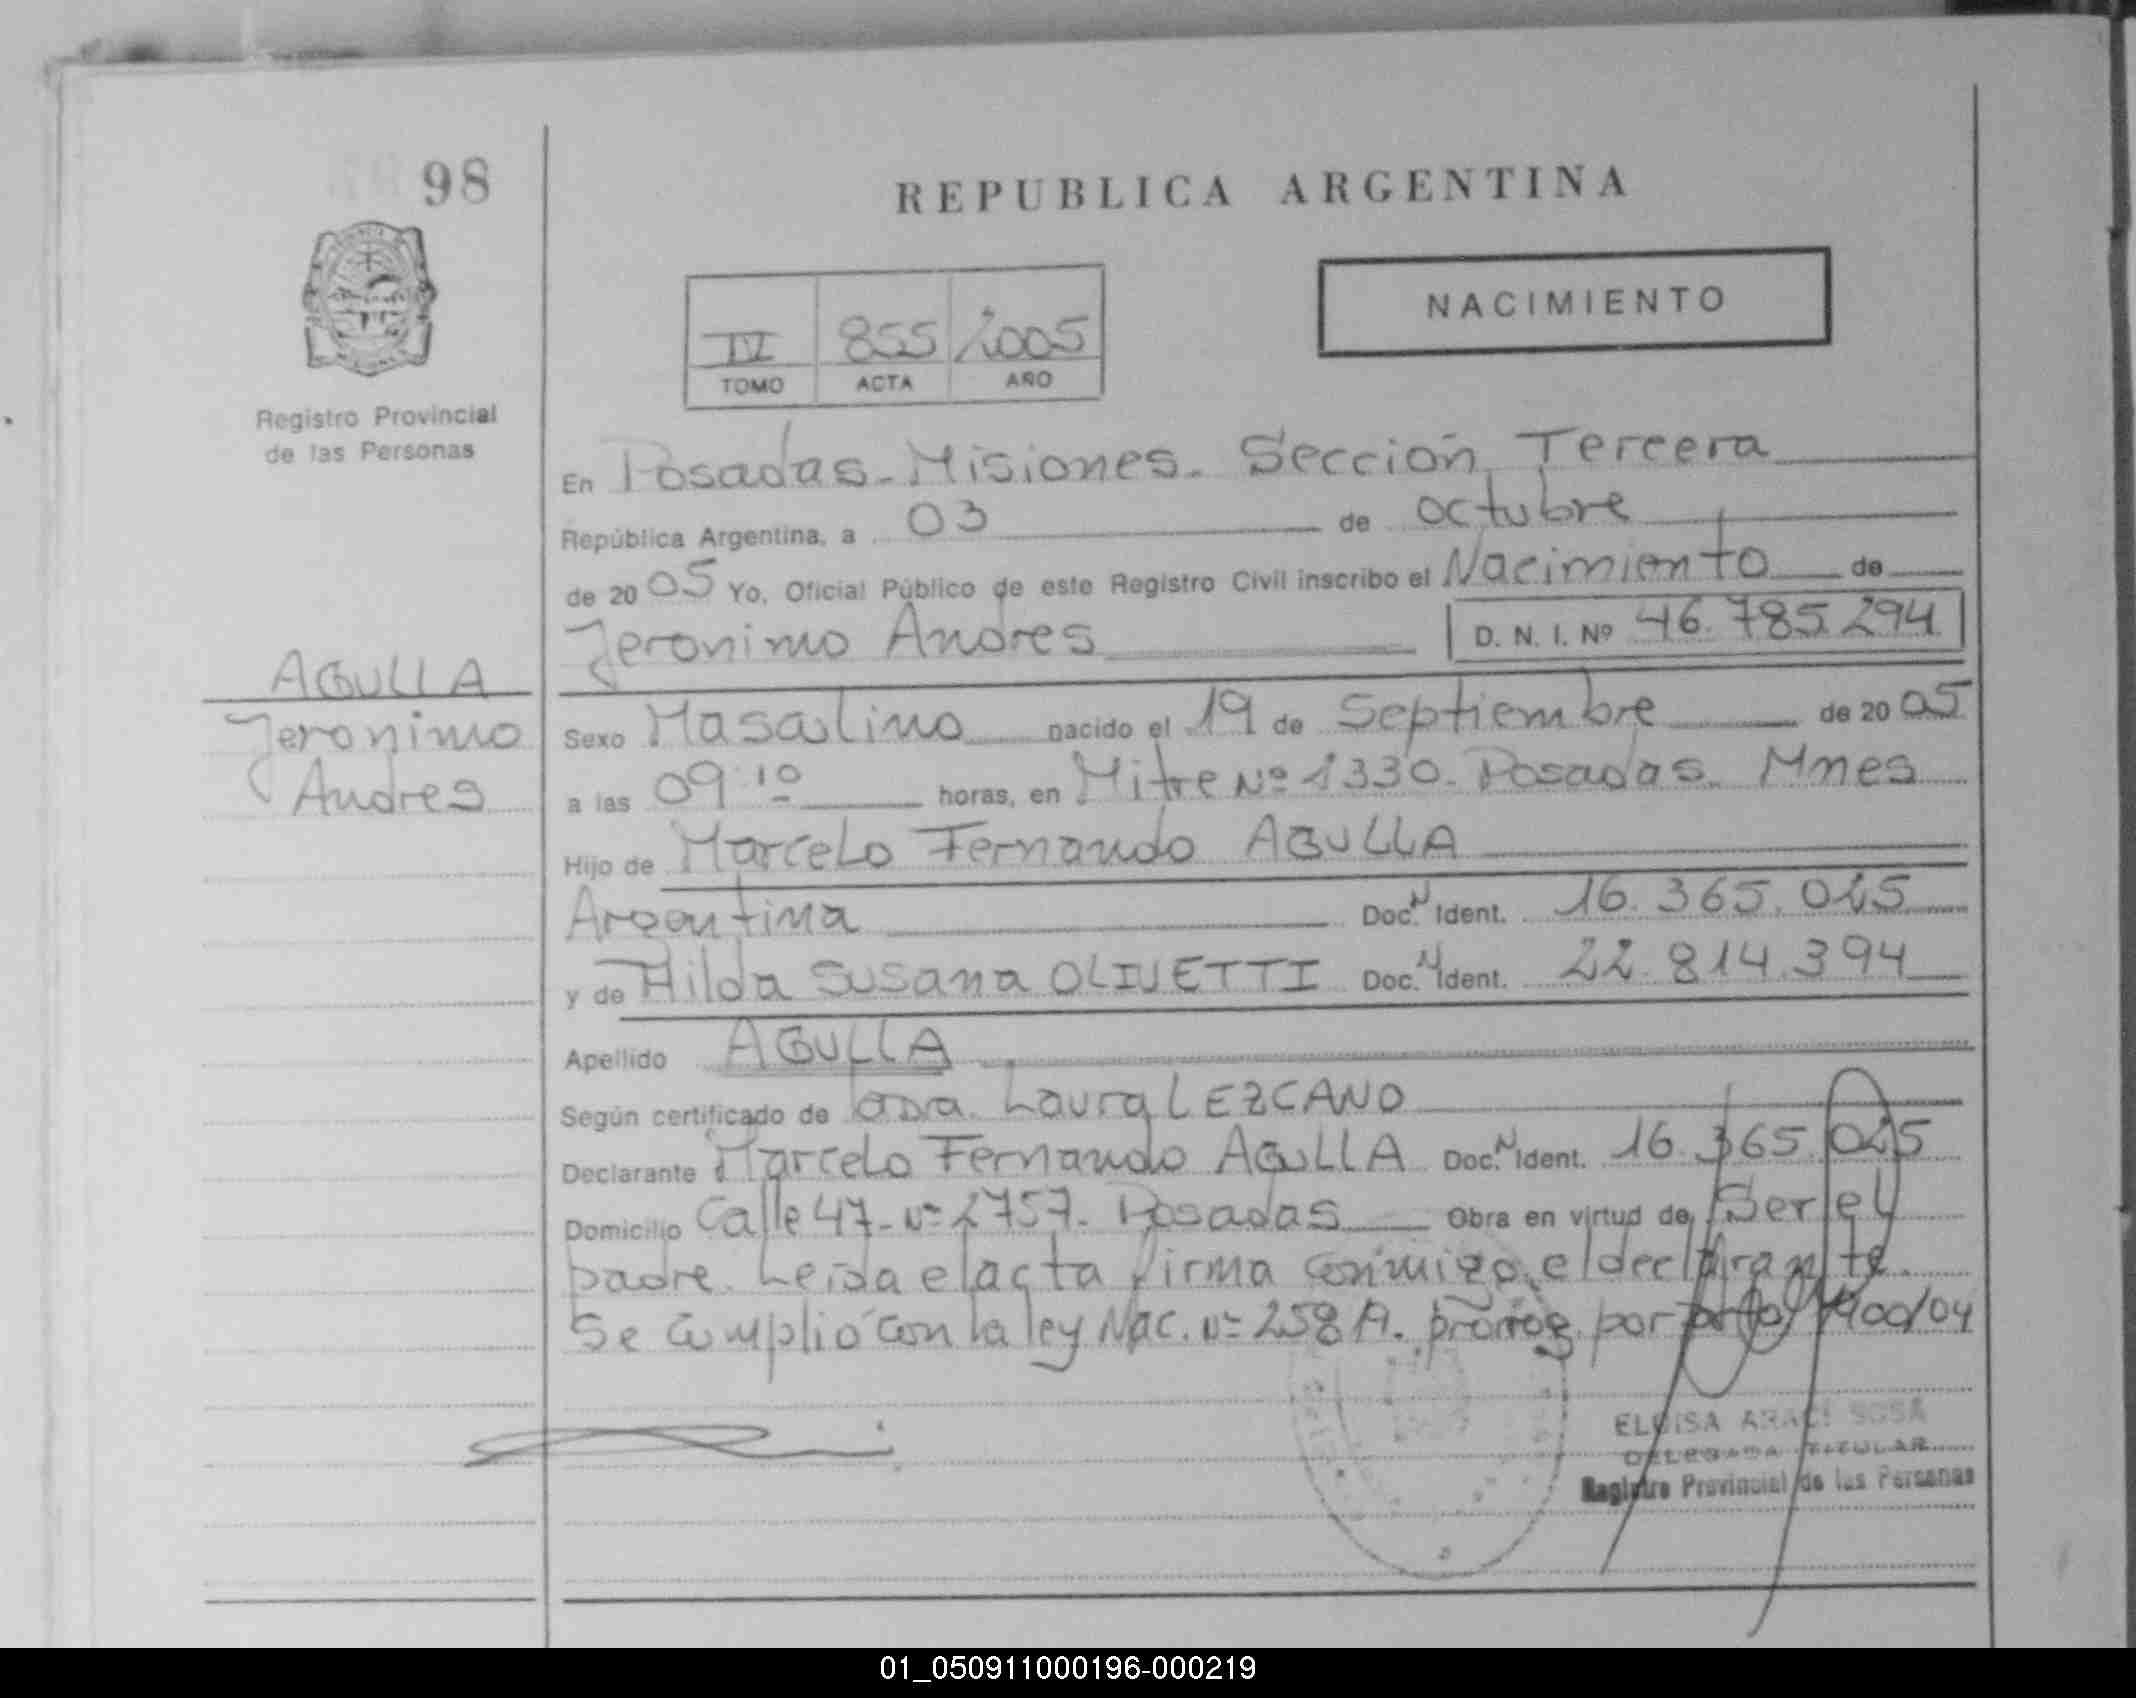 98
REPUBLICA ARGENTINA
NACIMIENTO
IV 855 2005
TOMO ACTA AÑO
Registro Provincial
de las Personas
En Posadas - Misiones. Sección Tercera
República Argentina, a 03 de octubre
de 2005 Yo, Oficial Público de este Registro Civil inscribo el Nacimiento de
Jeronimo Andres D. N. I. Nº 46.785.294
AGULLA
Jeronimo
Andres
Sexo Masculino nacido el 19 de Septiembre de 2005
a las 09:10 horas, en Mitre Nº 1330. Posadas. Mnes
Hijo de Marcelo Fernando AGULLA
Argentina Doc. N Ident. 16.365.025
y de Hilda Susana OLIVETTI Doc. N Ident. 22.814.394
Apellido AGULLA
Según certificado de Laura LEZCANO
Declarante Marcelo Fernando AGULLA Doc. N Ident. 16.365.025
Domicilio Calle 47 - Nº 2757. Posadas Obra en virtud de Ser el
padre. Leída el acta firma conmigo el declarante.
Se cumplió con la ley Nac. Nº por /04
ELOISA ARACI SOSA
DELEGADA TITULAR
Registro Provincial de las Personas
01_050911000196-000219